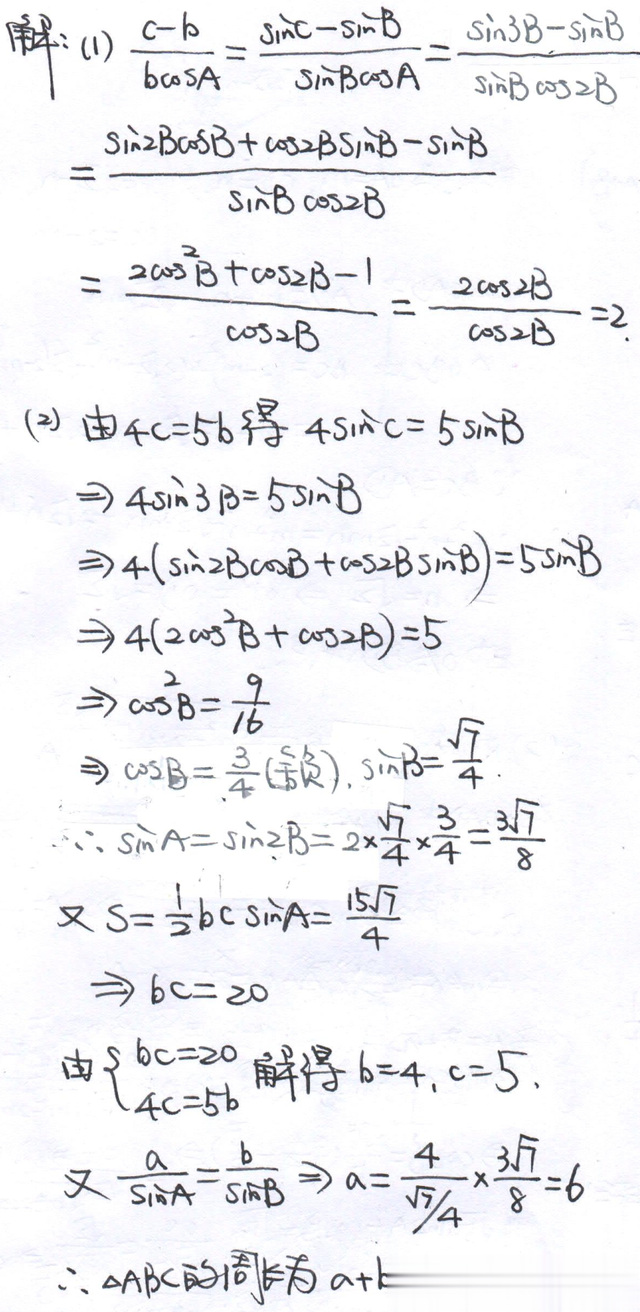 解: (1) (c-b)/(bcosA) = (sinC-sinB)/(sinBcosA) = (sin3B-sinB)/(sinBcos2B)
= (sin2BcosB+cos2BsinB-sinB)/(sinBcos2B)
= (2cos²B+cos2B-1)/(cos2B) = (2cos2B)/(cos2B) = 2.
(2) 由4c=5b得 4sinC=5sinB
⇒ 4sin3B=5sinB
⇒ 4(sin2BcosB+cos2BsinB)=5sinB
⇒ 4(2cos²B+cos2B)=5
⇒ cos²B=9/16
⇒ cosB=3/4(舍负), sinB=√7/4.
∴ sinA=sin2B=2×√7/4×3/4=3√7/8
又 S=1/2bcsinA=15√7/4
⇒ bc=20
由{bc=20 4c=5b 解得 b=4, c=5.
又 a/sinA=b/sinB ⇒ a=4/(√7/4)×3√7/8=6
∴ △ABC的周长为 a+